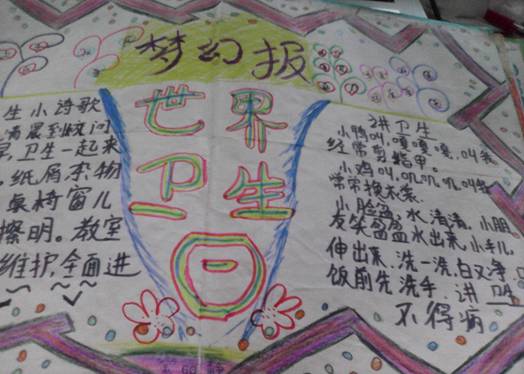 梦幻报
世界
卫生
日
生小诗歌
清晨到校门
卫生一起来
纸屑杂物
桌椅窗儿
擦明。教室
维护，全面进
讲卫生
小鸭叫，嘎嘎嘎，叫我
经常剪指甲。
小鸡叫，叽叽叽，叫我
常常换衣
小脸盆，水清清，小朋
友笑盈盈，水出来，小手儿
伸出来，洗一洗，白又净，
饭前先洗手，讲卫
不得病